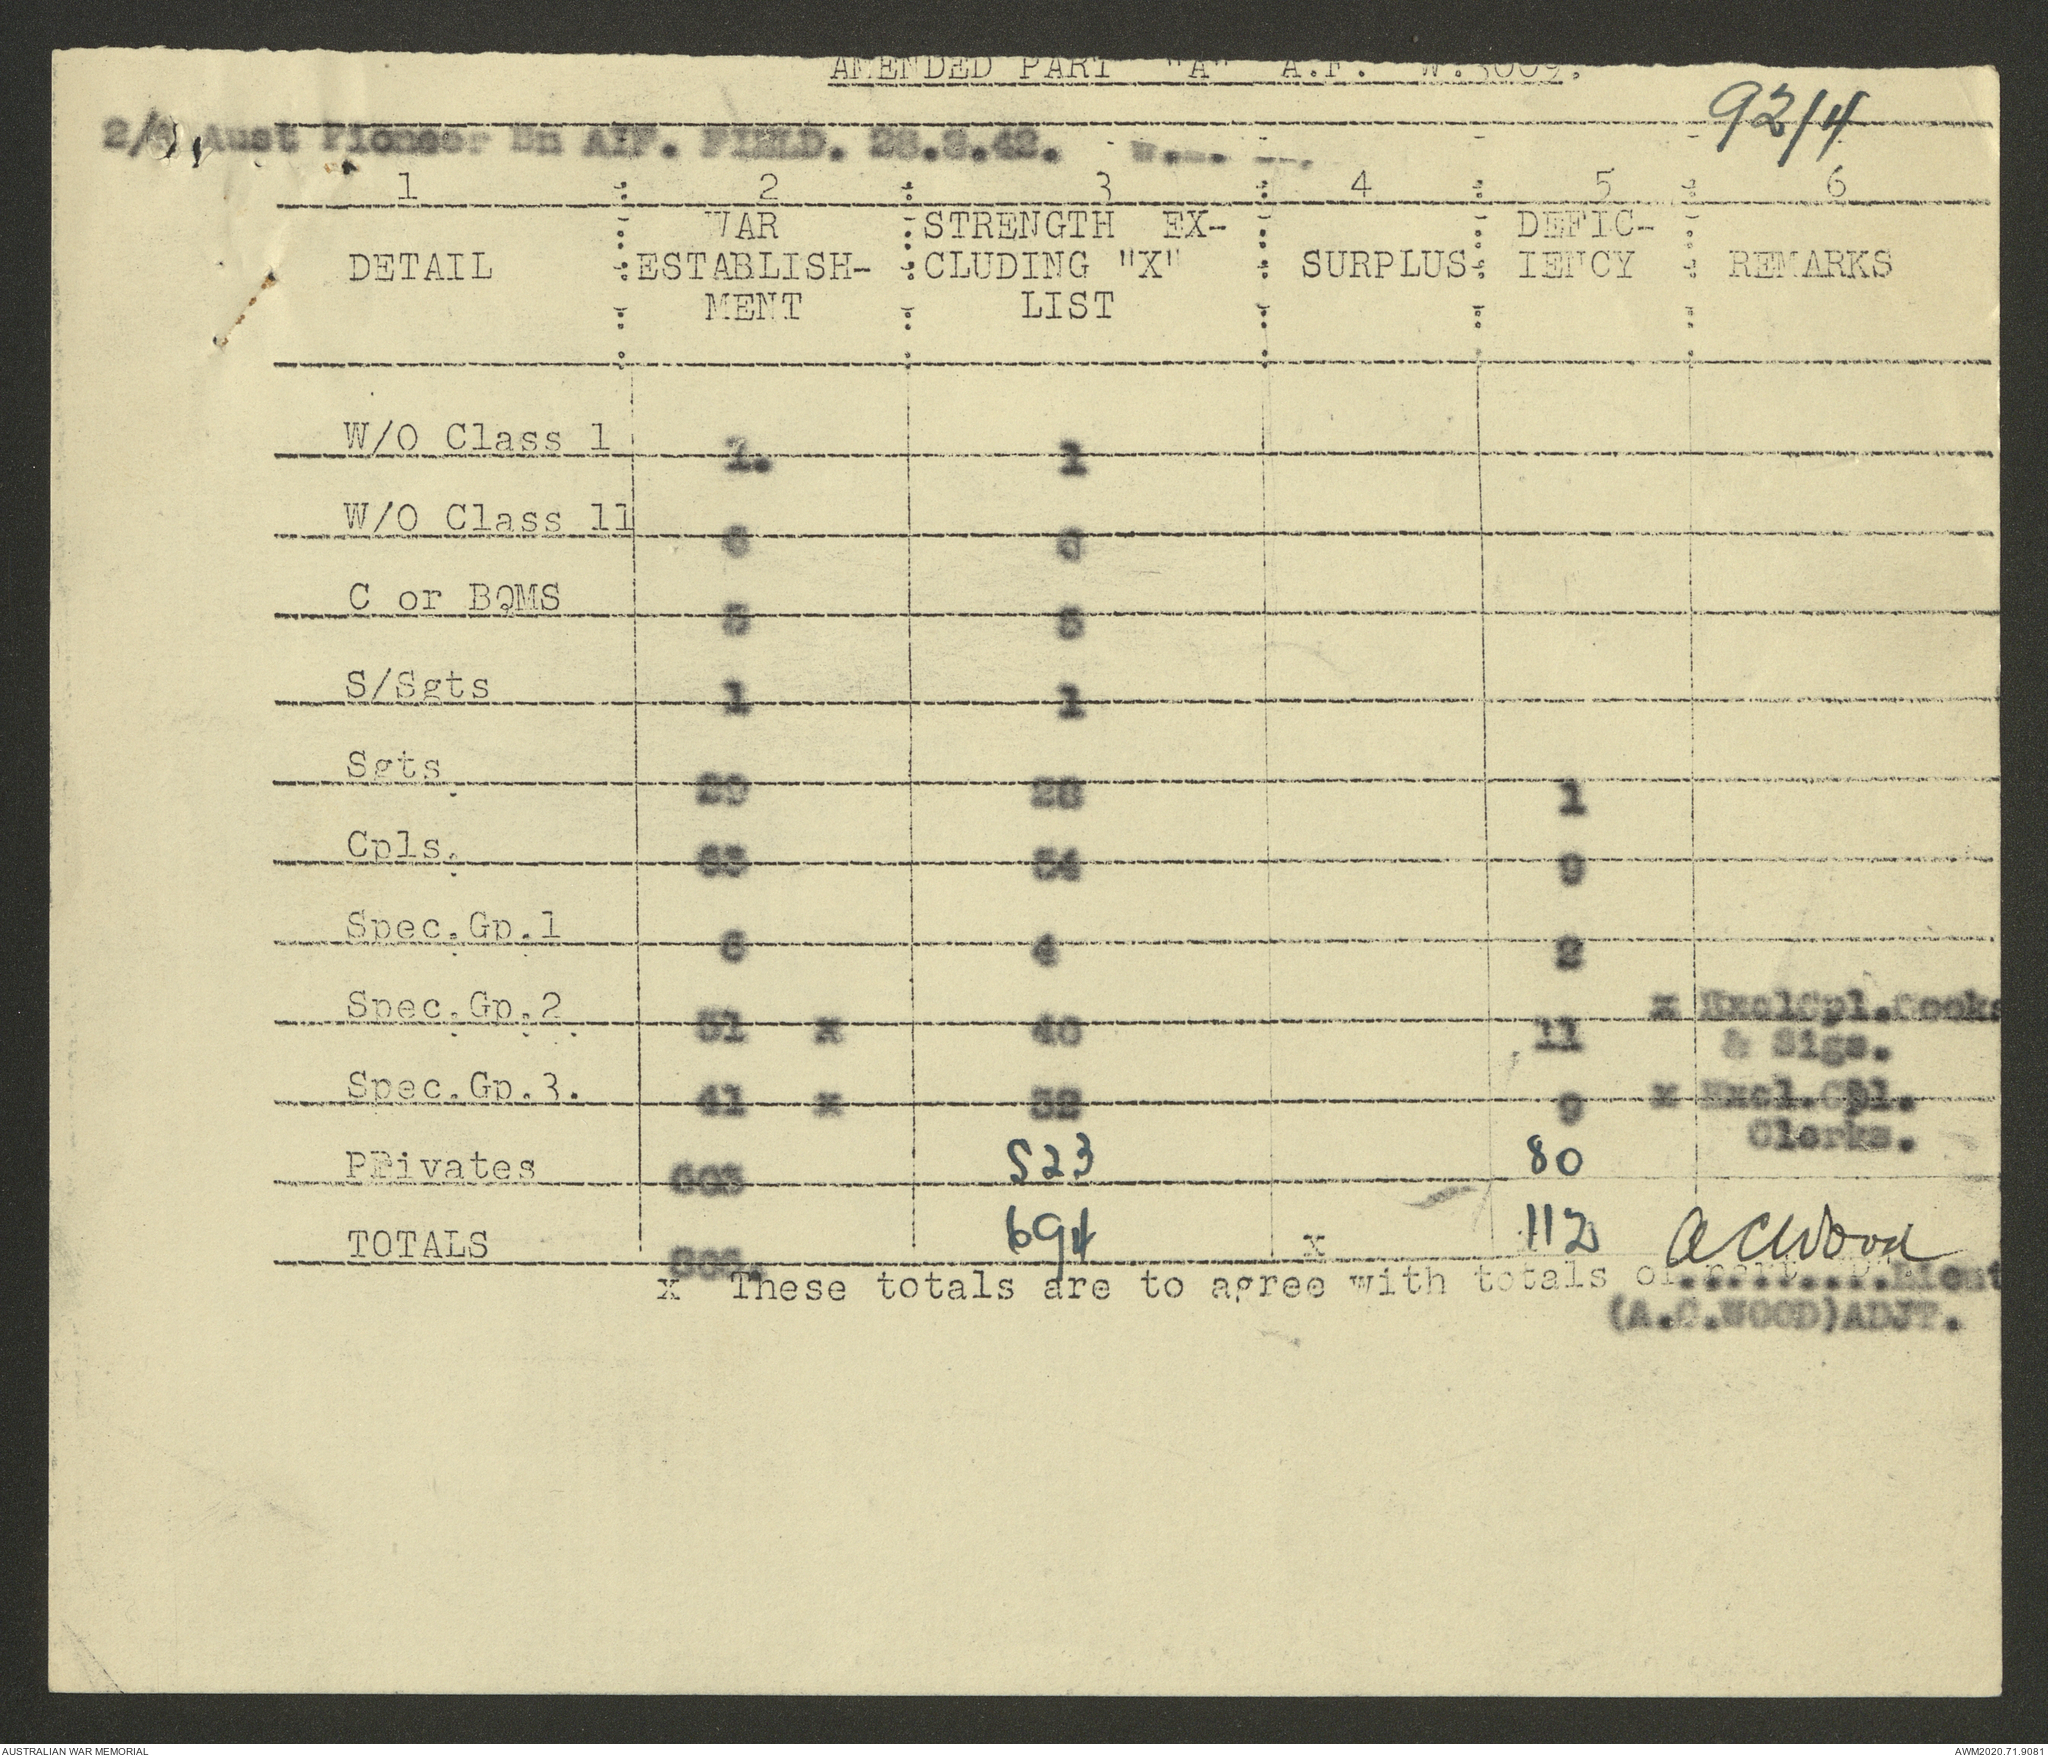 AMENDED PART "A" A.F. W.3009.
92/4
2/4, Aust Pioneer Bn AIF. FIELD.
1 2 3 4 5 6
WAR STRENGTH EX- DEFIC-
DETAIL ESTABLISH- CLUDING "X" SURPLUS IENCY REMARKS
MENT LIST
W/O Class 1 1. 1
W/O Class 11 6 6
C or BQMS 5 5
S/Sgts 1 1
Sgts. 29 28 1
Cpls. 63 54 9
Spec.Gp.1 6 4 2
Spec.Gp.2 51 x 40 11 x ExclCpl.Cooks
& Sigs.
Spec.Gp.3. 41 x 32 9 x Excl.Cpl.
Clerks.
PRivates 603 523 80
TOTALS 806. 694 x 112 A C Wood
x These totals are to agree with totals of part Lieut
(A.C.WOOD)ADJT.
AUSTRALIAN WAR MEMORIAL
AWM2020.71.9081